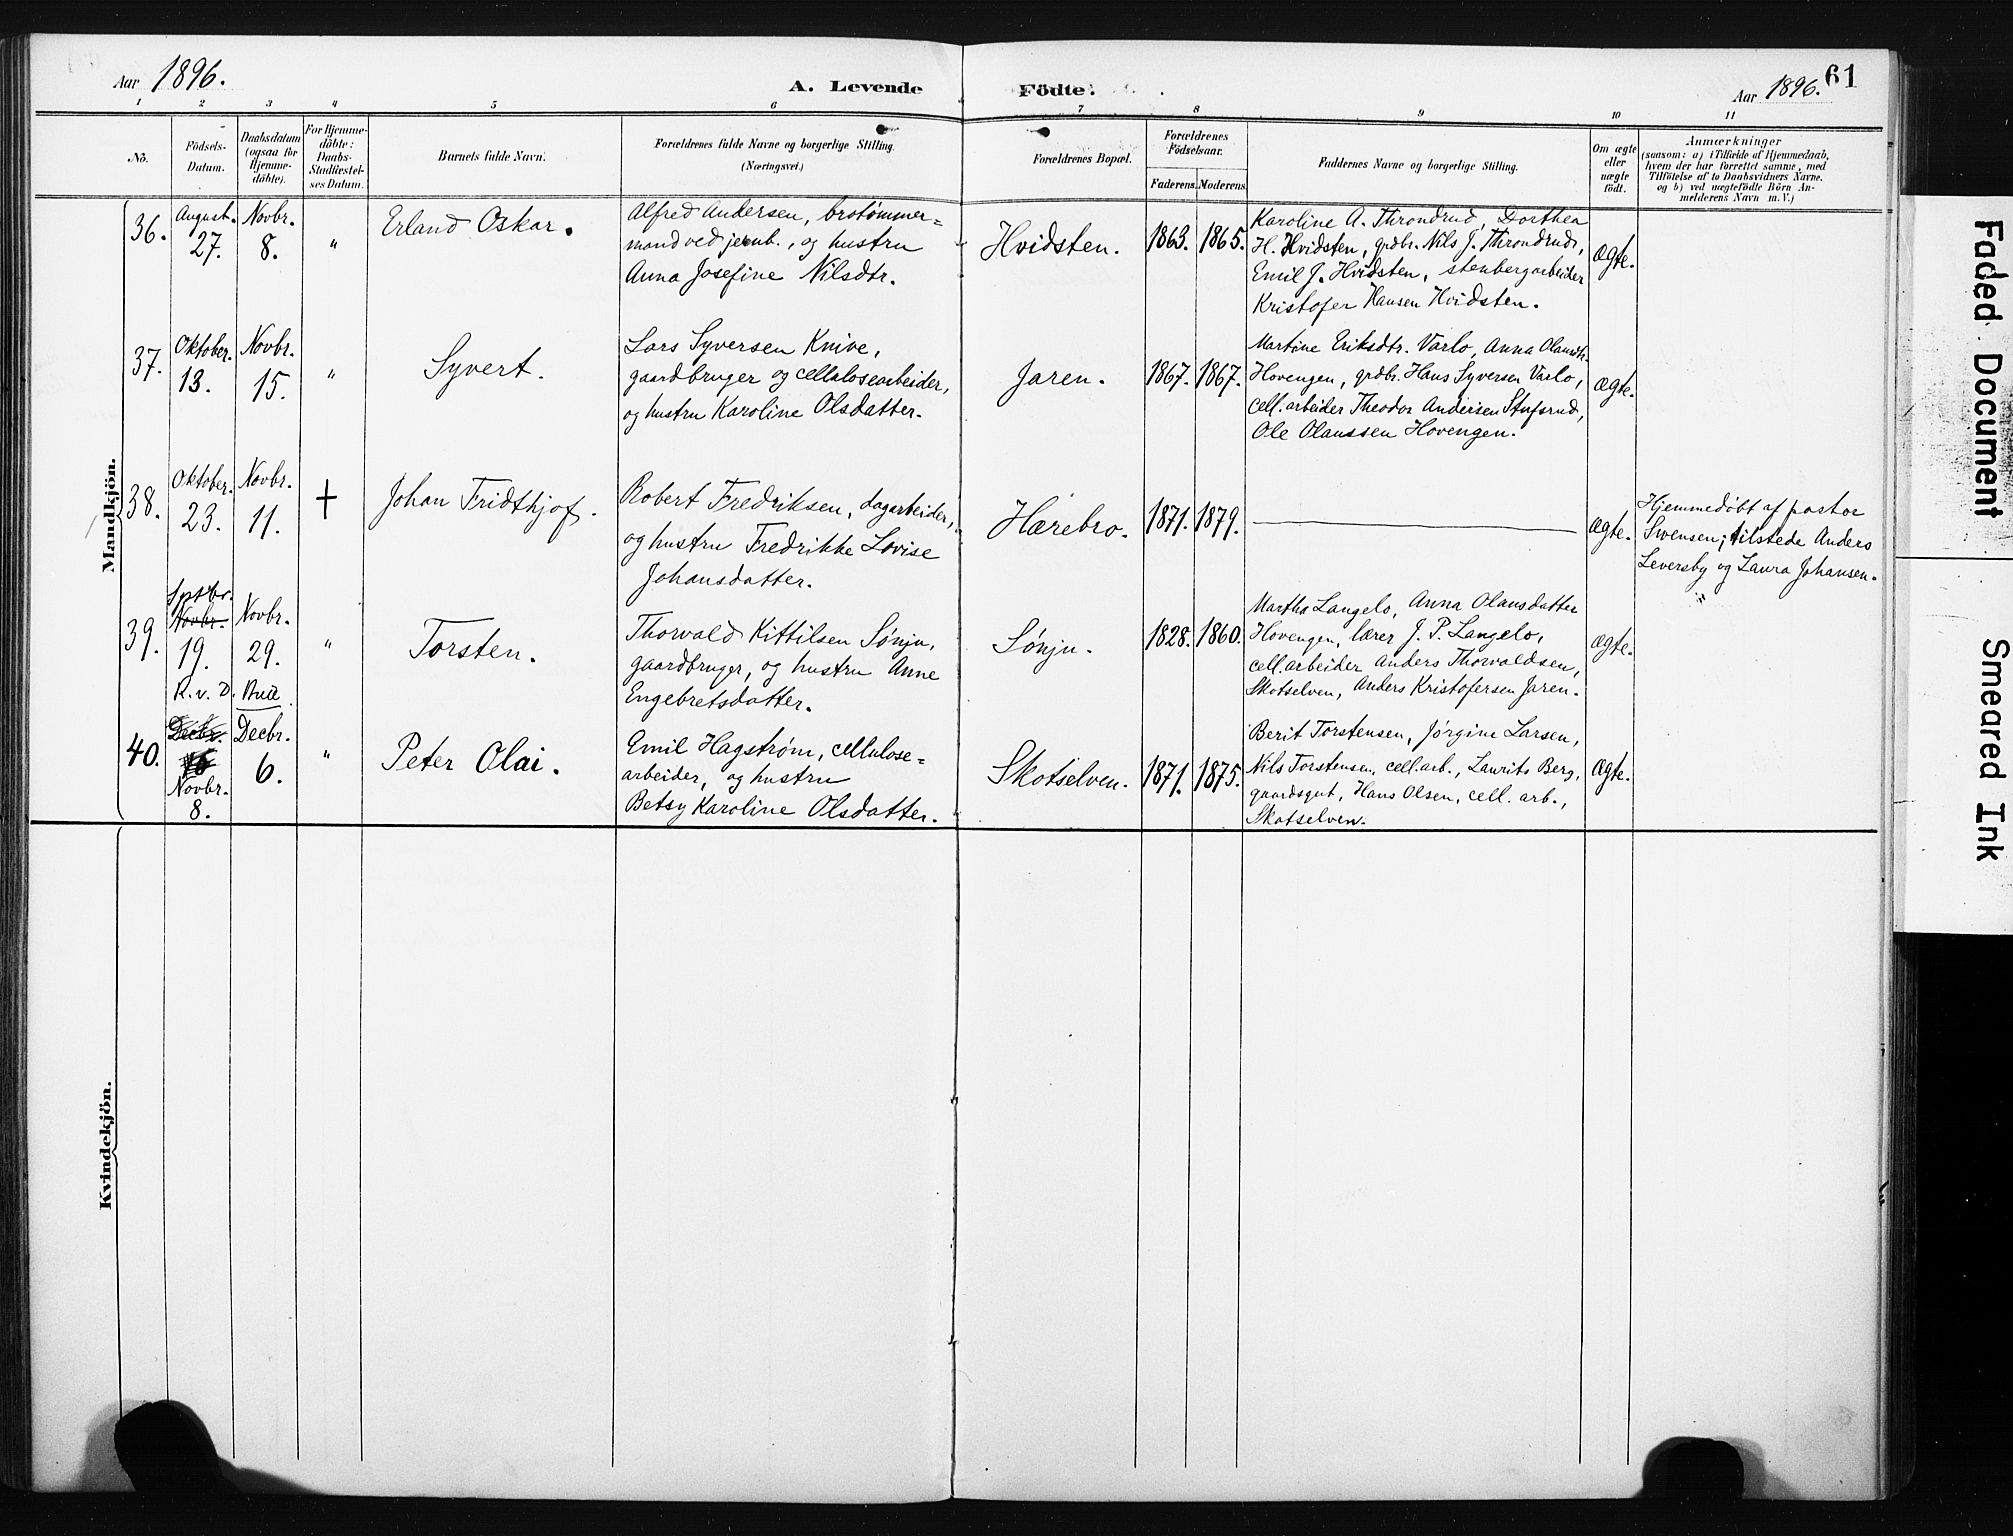 Aar 1896.
A. Levende Födte.
Aar 1896.
61
1 2 3 4 5 6 7 8 9 10 11
No.
Födsels-
Datum.
Daabsdatum
(ogsaa for
Hjemme-
döbte).
For Hjemme-
döbte:
Daabs-
Stadfæstel-
ses Datum.
Barnets fulde Navn.
Forældrenes fulde Navne og borgerlige Stilling.
(Næringsvei.)
Forældrenes Bopæl.
Forældrenes
Födselsaar.
Faderens. Moderens.
Faddernes Navne og borgerlige Stilling.
Om ægte
eller
uægte
födt.
Anmærkninger
(saasom: a) i Tilfælde af Hjemmedaab,
hvem der har forrettet samme, med
Tilföielse af to Daabsvidners Navne,
og b) ved uægtefödte Börn An-
melderens Navn m. V.)
Mandkjön.
36.
August.
27.
Novbr.
8.
"
Erland Oskar.
Alfred Andersen, brotømmer=
mand ved jernb., og hustru
Anna Josefine Nilsdtr.
Hvidsten.
1863. 1865.
Karoline A. Throndrud, Dorthea
H. Hvidsten, grdbr. Nils J. Throndrud,
Emil J. Hvidsten, stenbergarbeider
Kristofer Hansen Hvidsten.
Ægte.
37.
Oktober.
13.
Novbr.
15.
"
Syvert.
Lars Syversen Knive,
gaardbruger og cellulosearbeider,
og hustru Karoline Olsdatter.
Jaren.
1867. 1867.
Martine Eriksdtr. Varlo, Anna Olausdtr.
Hovengen, grdbr. Hans Syversen Varlo,
cell. arbeider Theodor Andersen Stufsrud,
Ole Olaussen Hovengen.
Ægte.
38.
Oktober.
23.
Novbr.
11.
+
Johan Fridthjof.
Robert Fredriksen, dagarbeider,
og hustru Fredrikke Lovise
Johansdatter.
Hærebro.
1871. 1879.
Ægte.
Hjemmedøbt af pastor
Swensen; tilstede Anders
Leversby og Laura Johansen.
39.
Sptbr.
Novbr.
19.
R. v. D.
Novbr.
29.
"
Torsten.
Thorvald Kittilsen Sønju,
gaardbruger, og hustru Anne
Engebretsdatter.
Sønju.
1828. 1860.
Martha Langelo, Anna Olausdatter
Hovengen, lærer J. P. Langelo,
cell. arbeider Anders Thorvaldsen,
Skotselven, Anders Kristofersen Jaren.
Ægte.
40.
Decbr.
Novbr.
8.
Decbr.
6.
"
Peter Olai.
Emil Hagstrøm, cellulose=
arbeider, og hustru
Betsy Karoline Olsdatter.
Skotselven.
1871. 1875.
Berit Torstensen, Jørgine Larsen,
Nils Torstensen, cell. arb., Laurits Berg,
gaardsgut, Hans Olsen, cell. arb.,
Skotselven.
Ægte.
Kvindekjön.
Faded Document
Smeared Ink